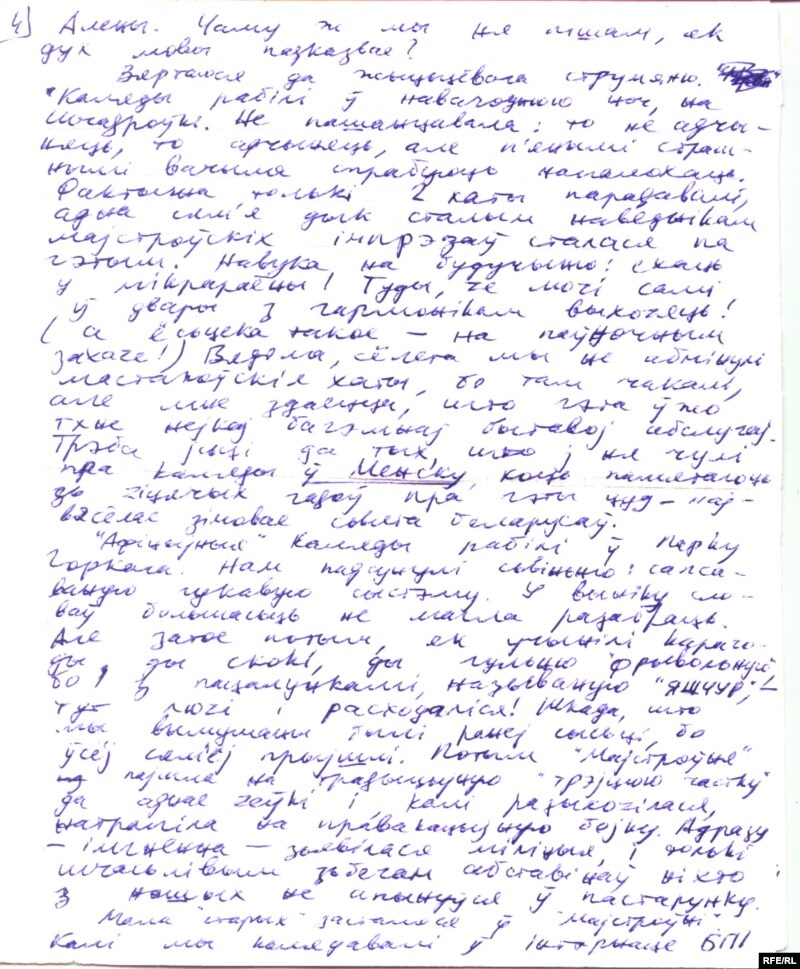 4) Алены. Чаму ж мы ня пішам, як
дух мовы падказвае?
Вяртаюся да жыцьцёвага струменю.
"Каляды рабілі ў навагоднюю ноч, на
шчадроўкі. Не пашанцавала: то не адчы-
няць, то адчыняць, але п'янымі страш-
нымі вачыма спрабуюць напалохаць.
Фактычна толькі 2 хаты парадавалі,
адна сям'я дык сталым наведнікам
майстроўскіх імпрэзаў сталася па
гэтым. Навука на будучыню:
у мікрараёны! Туды, дзе людзі самі
ў двары з гармонікам выходзяць!
(а ёсьцека такое — на паўночным
захадзе!) Вядома, сёлета мы не абмінулі
мастакоўскія хаты, бо там чакалі,
але мне здаецца, што гэта ўжо
тхне нейкай багэмнай бытавой абслугай.
Трэба ісьці да тых, што й ня чулі
пра каляды ў Менску, хоць памятаюць
зь дзіцячых гадоў пра гэты цуд — най-
вясёлае зімовае сьвята беларусаў.
"Афіцыйныя" Каляды рабілі ў парку
Горкага. Нам падсунулі сьвінню: сапса-
ваную гукавую сыстэму. У выніку сло-
ваў большасьць не магла разабраць.
Але затое потым, як учынілі карага-
ды, ды скокі, ды гульню "фрывольную",
бо з пацалункамі, называную "ЯШЧУР", —
тут людзі і расходзіліся! Шкада, што
мы вымушаны былі раней сысьці, бо
ўсёй сям'ёй прыйшлі. Потым "Майстроўня"
пайшла на традыцыйную "трэйцюю частку"
да аднае дзеўкі і калі разыходзілася,
натрапіла на правакацыйную бойку. Адразу
— імгненна — зьявілася міліцыя, і толькі
шчасьлівым зьбегам абставінаў ніхто
з нашых не апынуўся ў пастарунку.
Мала "старых" засталося ў "Майстроўні".
Калі мы калядавалі ў інтэрнаце БПІ
RFE/RL